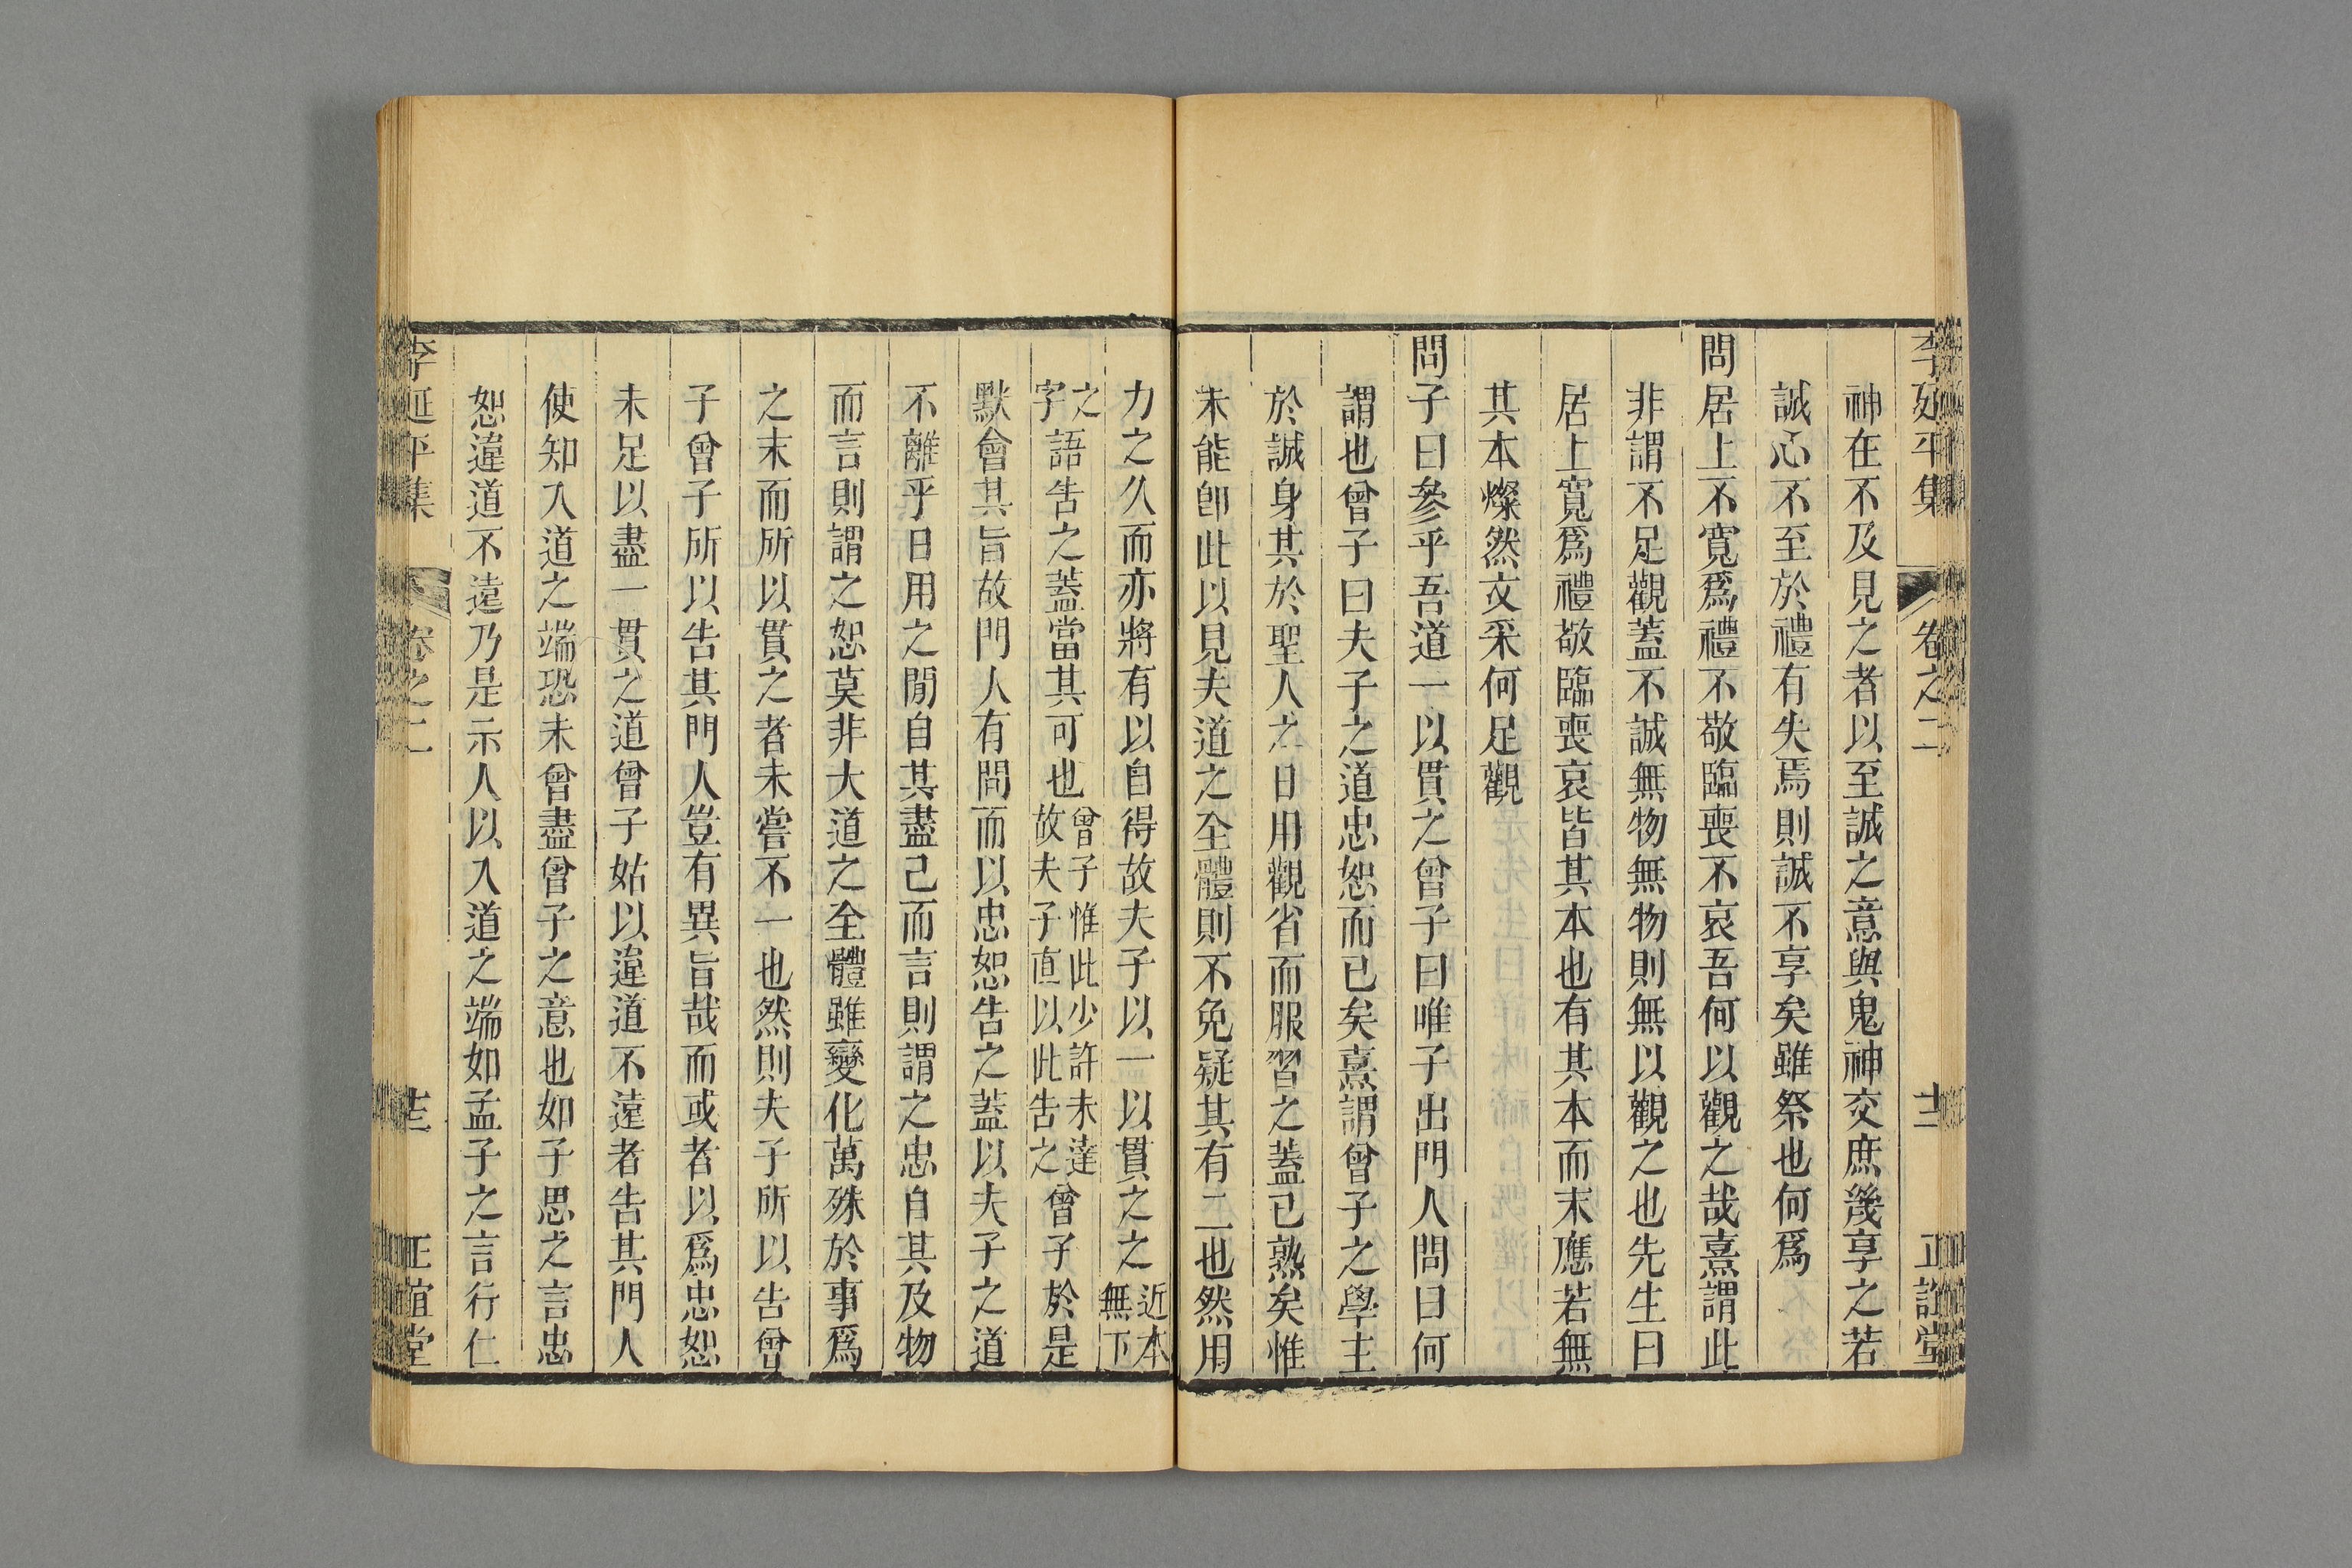 李延平集 卷之二 十二 正誼堂
神在不及見之者以至誠之意與鬼神交庶幾享之若
誠心不至於禮有失焉則誠不享矣雖祭也何爲
問居上不寬爲禮不敬臨喪不哀吾何以觀之哉熹謂此
非謂不足觀蓋不誠無物無物則無以觀之也先生曰
居上寬爲禮敬臨喪哀皆其本也有其本而末應若無
其本燦然文采何足觀
問子曰參乎吾道一以貫之曾子曰唯子出門人問曰何
謂也曾子曰夫子之道忠恕而已矣熹謂曾子之學主
於誠身其於聖人之日用觀省而服習之蓋已熟矣惟
未能卽此以見夫道之全體則不免疑其有二也然用
力之久而亦將有以自得故夫子以一以貫之之近本無下
之字語告之蓋當其可也曾子惟此少許未達故夫子直以此告之曾子於是
默會其旨故門人有問而以忠恕告之蓋以夫子之道
不離乎日用之閒自其盡己而言則謂之忠自其及物
而言則謂之恕莫非大道之全體雖變化萬殊於事爲
之末而所以貫之者未嘗不一也然則夫子所以告曾
子曾子所以告其門人豈有異旨哉而或者以爲忠恕
未足以盡一貫之道曾子姑以違道不遠者告其門人
使知入道之端恐未曾盡曾子之意也如子思之言忠
恕違道不遠乃是示人以入道之端如孟子之言行仁
李延平集 卷之二 十三 正誼堂